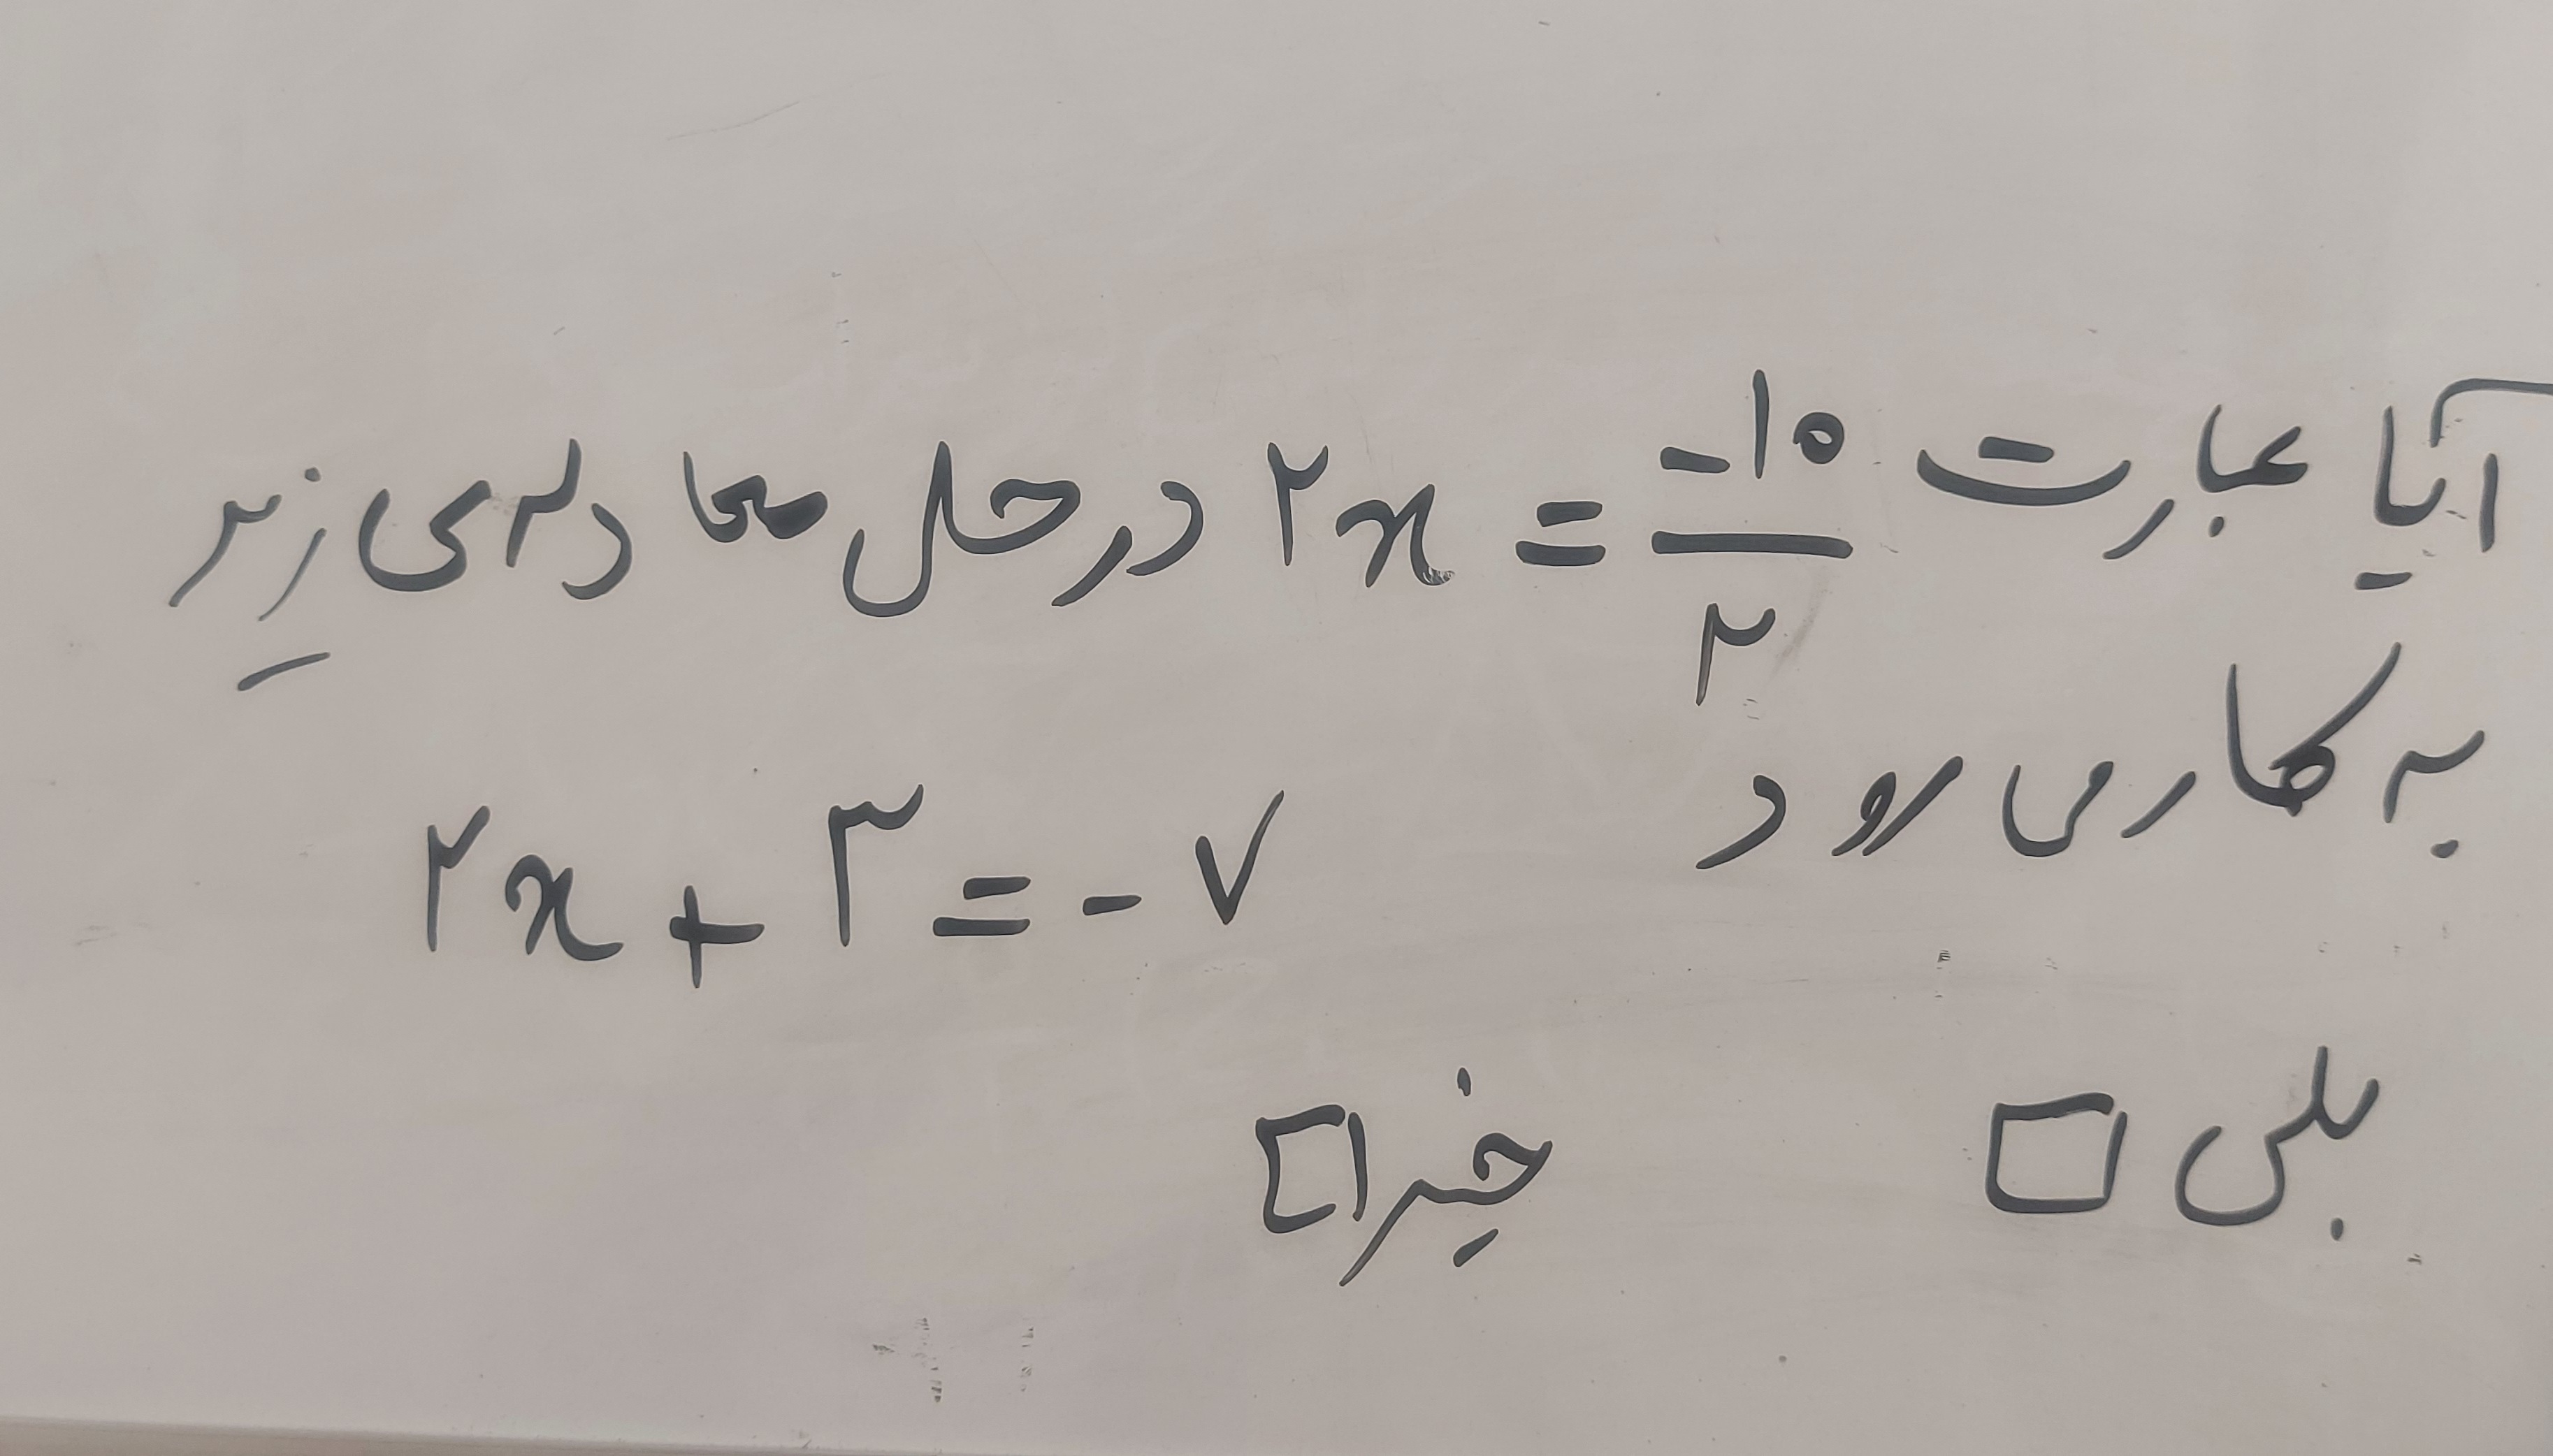 آیا عبارت ۲x = -۱۰/۲ در حل معادله‌ی زیر
به کار می رود
۲x + ۳ = - ۷
بلی □ خیر □